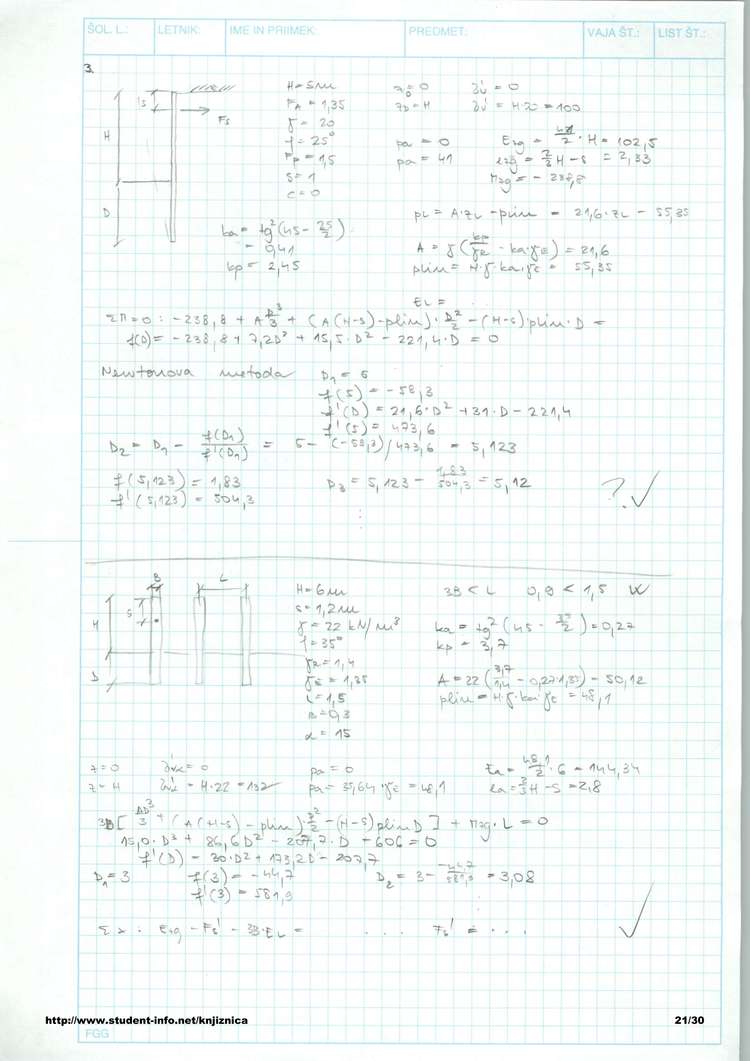 ŠOL. L.: LETNIK: IME IN PRIIMEK: PREDMET: VAJA ŠT.: LIST ŠT.:
3.
H = 5m
F_A = 1,35
γ = 20
f = 25°
F_P = 1,5
s = 1
c = 0
s
F_s
H
D
z_D = H
σv' = 0
σv' = H·20 = 100
pa = 0
pa = 41
Ezg = 41/2 · H = 102,5
ezg = 2/3 H - s = 2,33
Mzg = - 238,8
ka = tg²(45 - 25/2)
= 0,41
kp = 2,45
pL = A·zL - plim = 21,6·zL - 55,35
A = γ (kp/γR - ka·γE) = 21,6
plim = H·γ·ka·γE = 55,35
EL =
ΣM=0 : -238,8 + A D³/3 + (A(H-s)-plim)· D²/2 - (H-s)·plim·D =
f(D) = - 238,8 + 7,2D³ + 15,5·D² - 221,4·D = 0
Newtonova metoda D1 = 5
f(5) = - 58,3
f'(D) = 21,6·D² + 31·D - 221,4
f'(5) = 473,6
D2 = D1 - f(D1)/f'(D1) = 5 - (-58,3)/473,6 = 5,123
f(5,123) = 1,83
f'(5,123) = 504,3
D3 = 5,123 - 1,83/504,3 = 5,12
? ✓
B L
s
H
D
H = 6m
s = 1,2m
γ = 22 kN/m³
f = 35°
γR = 1,4
γE = 1,35
L = 1,5
B = 0,3
α = 15
3B < L 0,9 < 1,5
ka = tg²(45 - 35/2) = 0,27
kp = 3,7
A = 22 (3,7/1,4 - 0,27·1,35) = 50,12
plim = H·γ·ka·γE = 48,1
z = 0 σvk' = 0 pa = 0
z = H σvk' = H·22 = 132 pa = 35,64·γE = 48,1
Ea = 48,1/2 · 6 = 144,34
ea = 2/3 H - s = 2,8
3B[ AD³/3 + (A(H-s) - plim)· D²/2 - (H-s)plim D ] + Mzg·L = 0
15,0·D³ + 86,6D² - 207,7·D - 606 = 0
f'(D) = 30·D² + 173,2D - 207,7
D1 = 3 f(3) = - 44,7
f'(3) = 581,9
D2 = 3 - -44,7/581,9 = 3,08
Σx : Ezg - Fs' - 3B·EL = . . . Fs' = . . .
✓
http://www.student-info.net/knjiznica
21/30
FGG